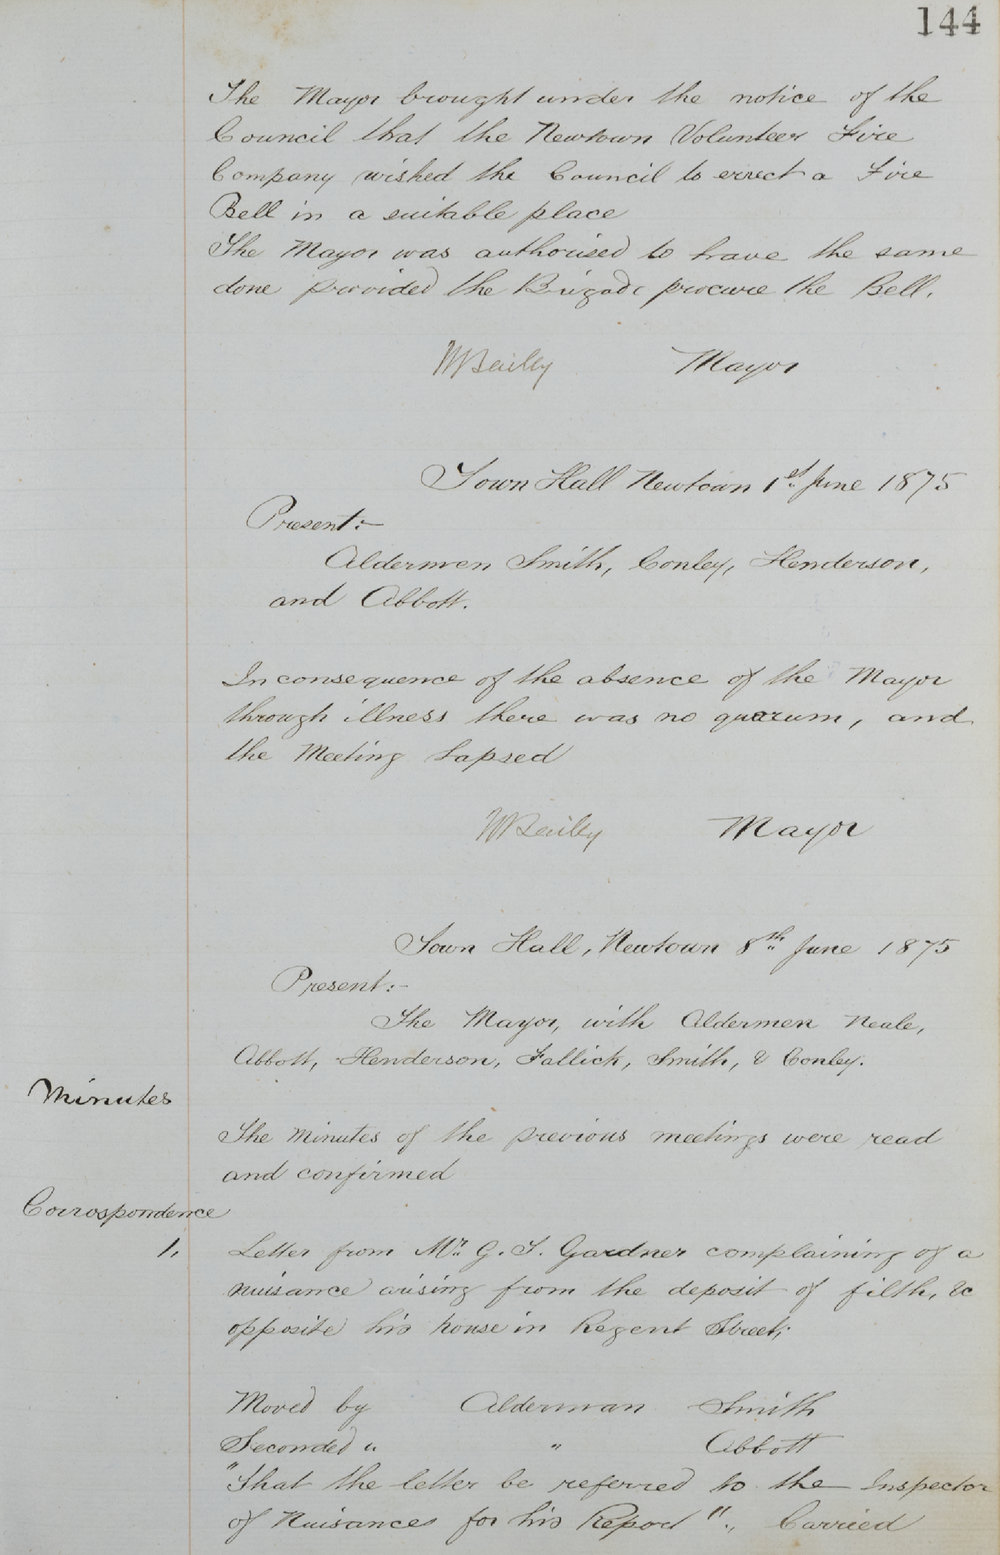 144
The Mayor brought under the notice of the
Council that the Newtown Volunteer Fire
Company wished the Council to errect a Fire
Bell in a suitable place
The Mayor was authorised to have the same
done provided the Brigade procure the Bell.
Mayor
Town Hall Newtown 1st June 1875
Present:-
Aldermen Smith, Conley, Henderson,
and Abbott.
In consequence of the absence of the Mayor
through illness there was no quorum, and
the Meeting Lapsed
Mayor
Town Hall, Newtown 8th June 1875
Present:-
The Mayor, with Aldermen Neale,
Abbott, Henderson, Fallick, Smith, & Conley.
Minutes
The Minutes of the previous meetings were read
and confirmed
Corrospondence
1, Letter from Mr. G. T. Gardner complaining of a
nuisance arising from the deposit of filth, &c
opposite his house in Regent Street;
Moved by Alderman Smith
Seconded " " Abbott
"That the letter be referred to the Inspector
of Nuisances for his Report"., Carried